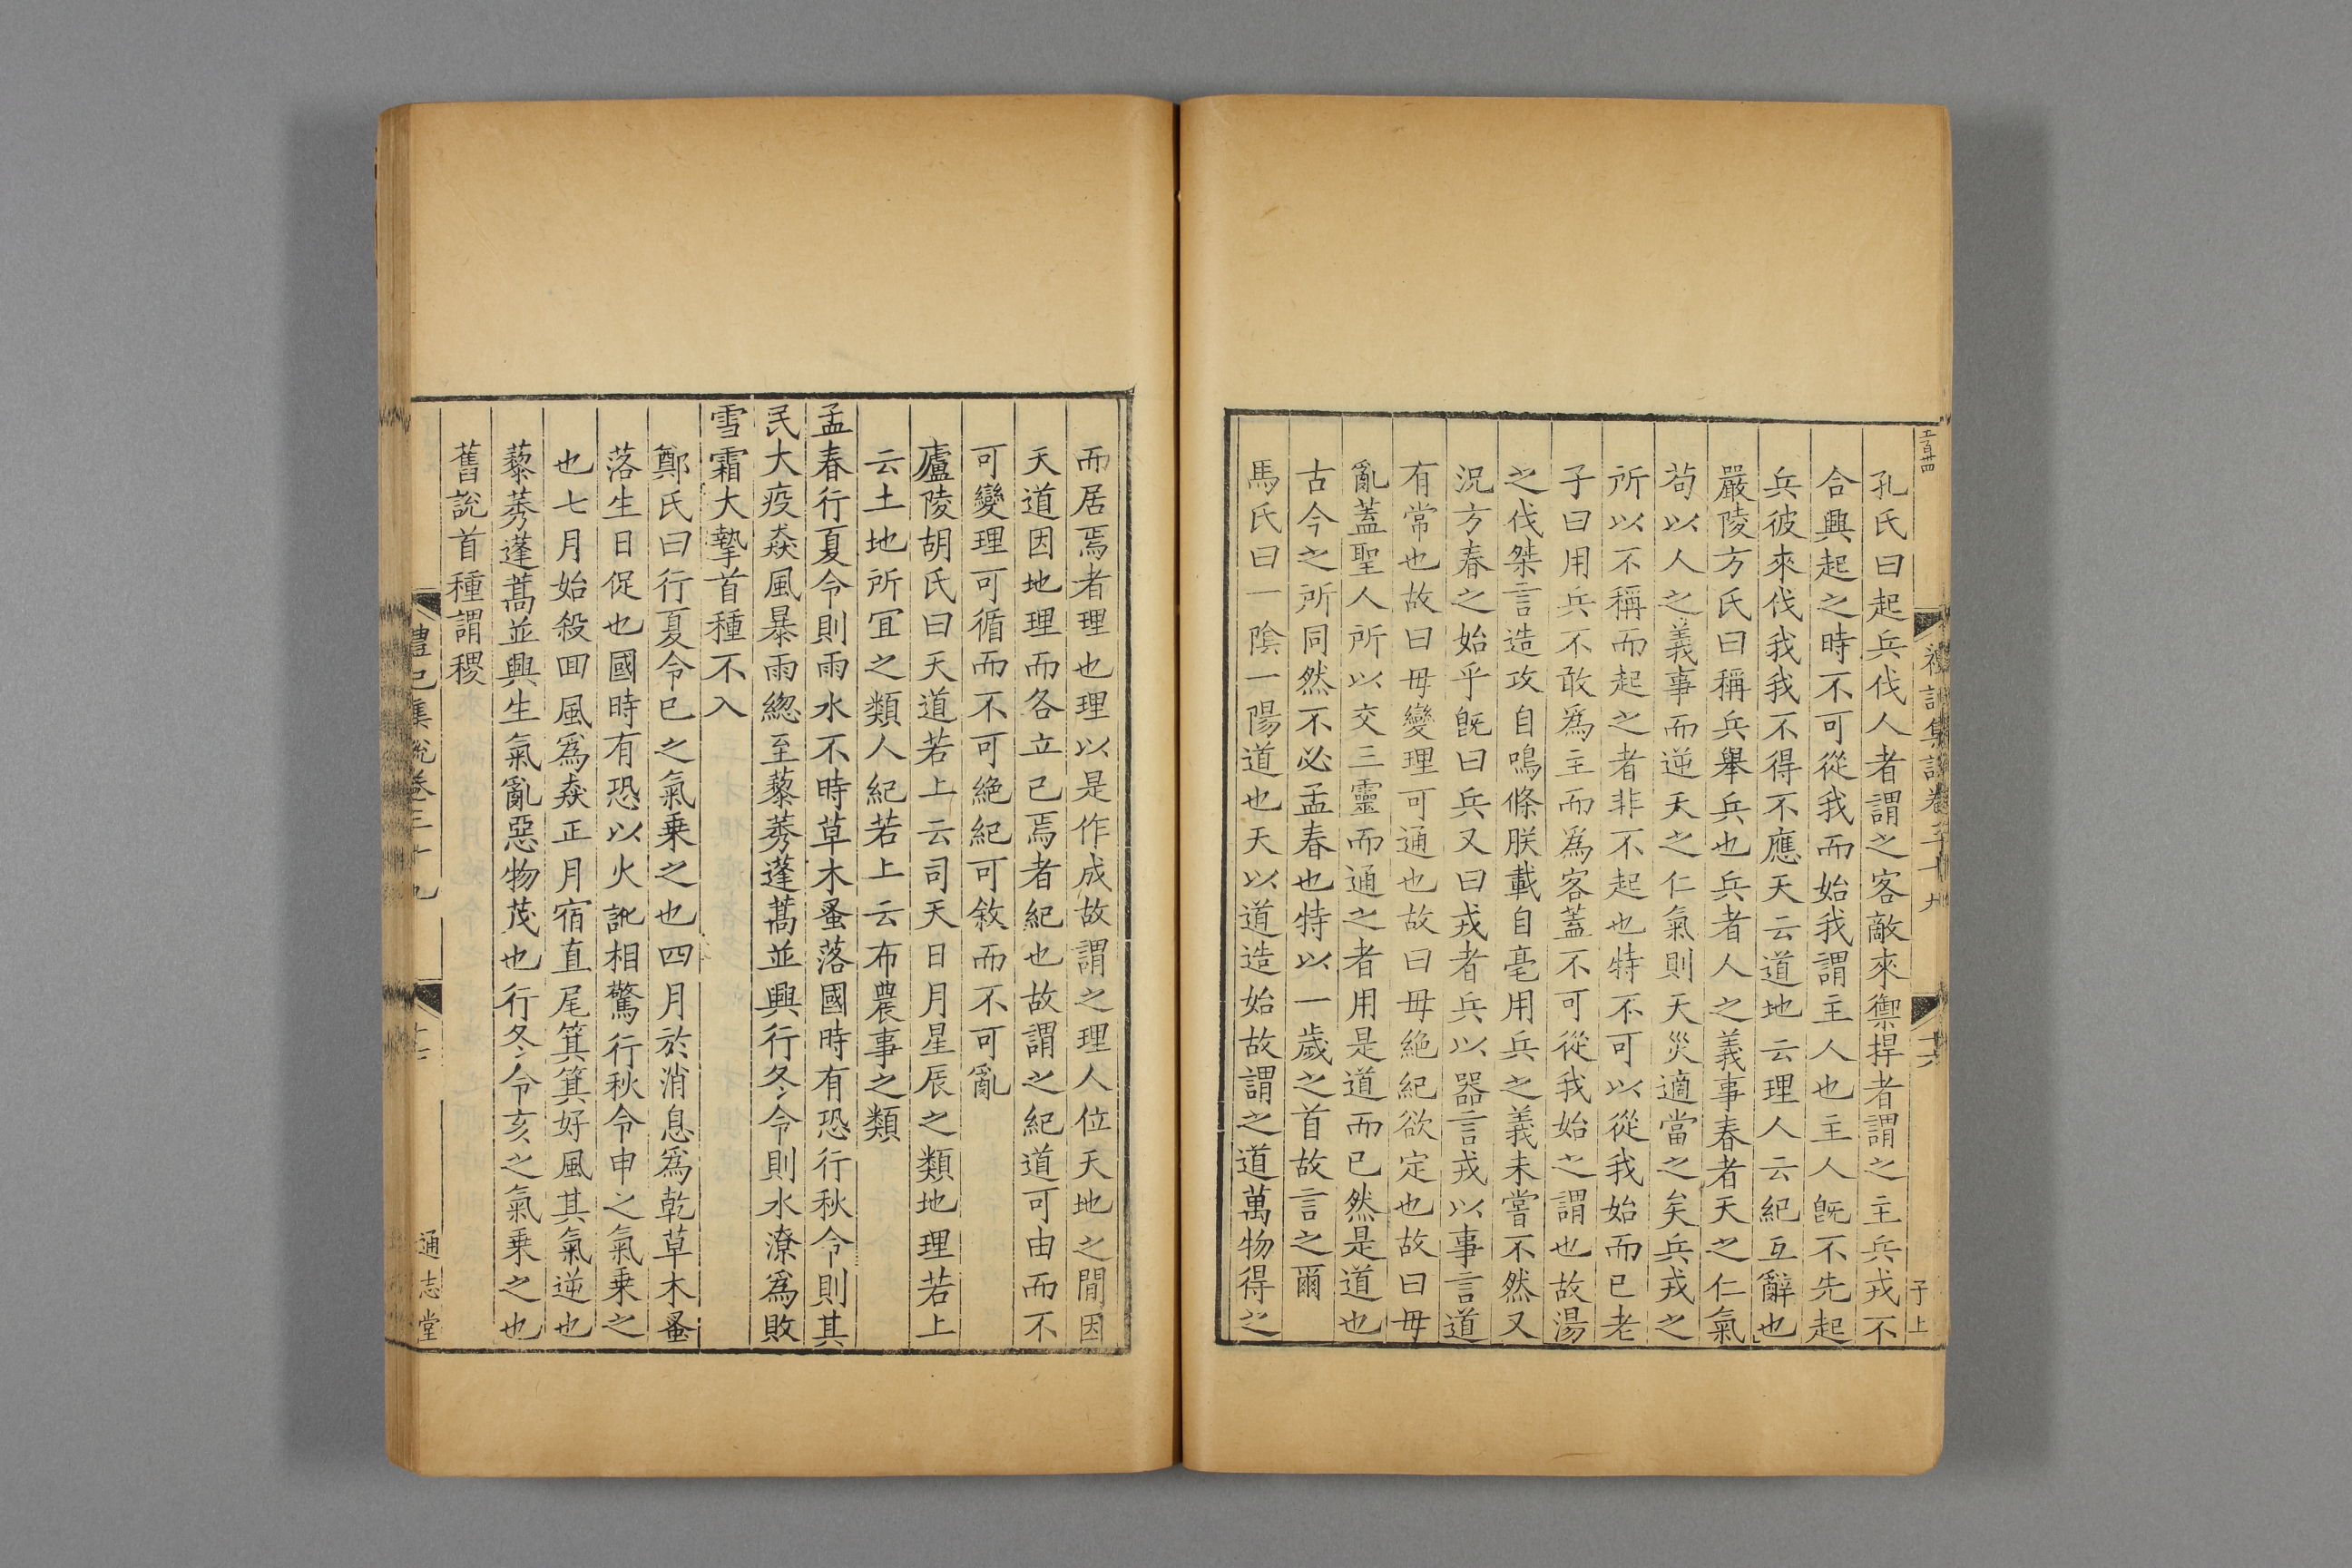 孔氏曰起兵伐人者謂之客敵來禦捍者謂之主兵戎不
合興起之時不可從我而始我謂主人也主人旣不先起
兵彼來伐我我不得不應天云道地云理人云紀互辭也
嚴陵方氏曰稱兵舉兵也兵者人之義事春者天之仁氣
苟以人之義事而逆天之仁氣則天災適當之矣兵戎之
所以不稱而起之者非不起也特不可以從我始而已老
子曰用兵不敢爲主而爲客蓋不可從我始之謂也故湯
之伐桀言造攻自鳴條朕載自亳用兵之義未嘗不然又
況方春之始乎旣曰兵又曰戎者兵以器言戎以事言道
有常也故曰毋變理可通也故曰毋絶紀欲定也故曰毋
亂蓋聖人所以交三靈而通之者用是道而已然是道也
古今之所同然不必孟春也特以一歲之首故言之爾
馬氏曰一隂一陽道也天以道造始故謂之道萬物得之
子上
而居焉者理也理以是作成故謂之理人位天地之閒因
天道因地理而各立己焉者紀也故謂之紀道可由而不
可變理可循而不可絶紀可敘而不可亂
廬陵胡氏曰天道若上云司天日月星辰之類地理若上
云土地所宜之類人紀若上云布農事之類
孟春行夏令則雨水不時草木蚤落國時有恐行秋令則其
民大疫猋風暴雨緫至藜莠蓬蒿並興行冬令則水潦爲敗
雪霜大摯首種不入
鄭氏曰行夏令巳之氣乗之也四月於消息爲乾草木蚤
落生日促也國時有恐以火訛相驚行秋令申之氣乗之
也七月始殺回風爲猋正月宿直尾箕箕好風其氣逆也
藜莠蓬蒿並興生氣亂惡物茂也行冬令亥之氣乗之也
舊說首種謂稷
禮記集說卷三十九
通志堂